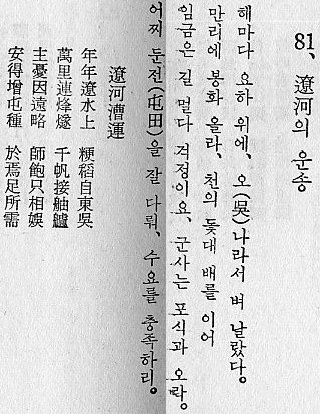 81、遼河의 운송
해마다 요하 위에、오(吳)나라서 벼 날랐다。
만리에 봉화 올라、천의 돛대 배를 이어
임금은 길 멀다 걱정이요、군사는 포식과 오락。
어찌 둔전(屯田)을 잘 다뤄、수요를 충족하리。
遼河漕運
年年遼水上 粳稻自東吳
萬里連烽燧 千帆接舳艫
主憂因遠略 師飽只相娛
安得增屯種 於焉足所需